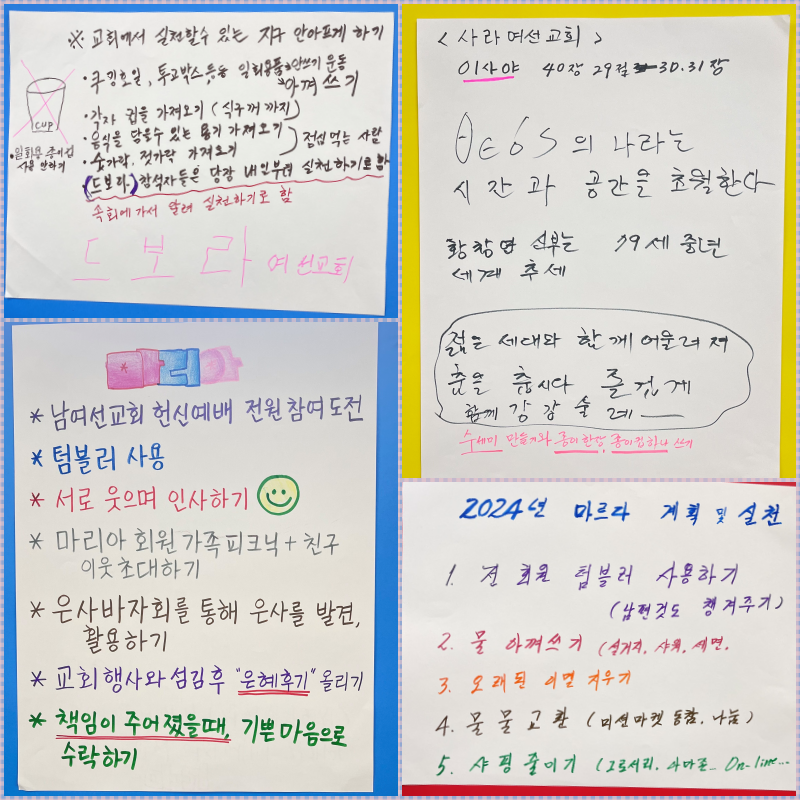 ※ 교회에서 실천할수 있는 지구 안아프게 하기
• 쿠킹호일, 투고박스 등 일회용품 안쓰기 운동
아껴 쓰기
• 각자 컵을 가져오기 (식구꺼 까지)
• 음식을 담을수 있는 용기 가져오기
• 숟가락, 젓가락 가져오기
점심 먹는 사람
cup
• 일회용 종이컵
사용 안하기
(드보라) 참석자들은 당장 내일부터 실천하기로 함
속회에 가서 알려 실천하기로 함
드보라 여선교회
< 사라 여선교회 >
이사야 40장 29절 30. 31장
θεós의 나라는
시간과 공간을 초월한다
황창연 신부는 79세 중년
세계 추세
젊은 세대와 함께 어울려져
춤을 춥시다 즐겁게
함께 강강술래
수세미 만들기와 종이한장, 종이컵하나 쓰기
마리아
* 남여선교회 헌신예배 전원참여도전
* 텀블러 사용
* 서로 웃으며 인사하기
* 마리아 회원 가족피크닉 + 친구
이웃초대하기
* 은사바자회를 통해 은사를 발견,
활용하기
* 교회행사와 섬김후 "은혜후기" 올리기
* 책임이 주어졌을때, 기쁜마음으로
수락하기
2024년 마르다 계획 및 실천
1. 전 회원 텀블러 사용하기
(남편것도 챙겨주기)
2. 물 아껴쓰기 (설거지, 샤워, 세면.
3. 오래된 이멜 지우기
4. 물물교환 (미션마켓 동참, 나눔)
5. 샤핑줄이기 (그로서리. 아마존_ On-line...